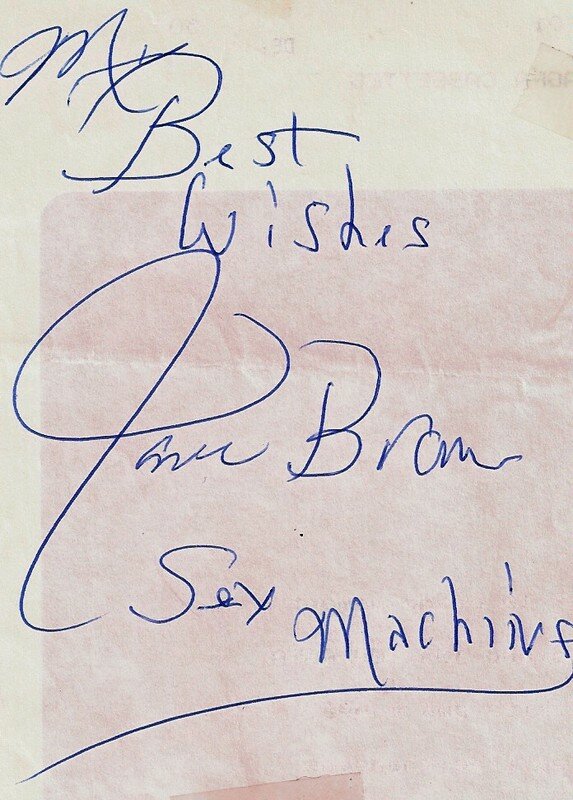 My
Best
Wishes
James Brown
Sex
Machine